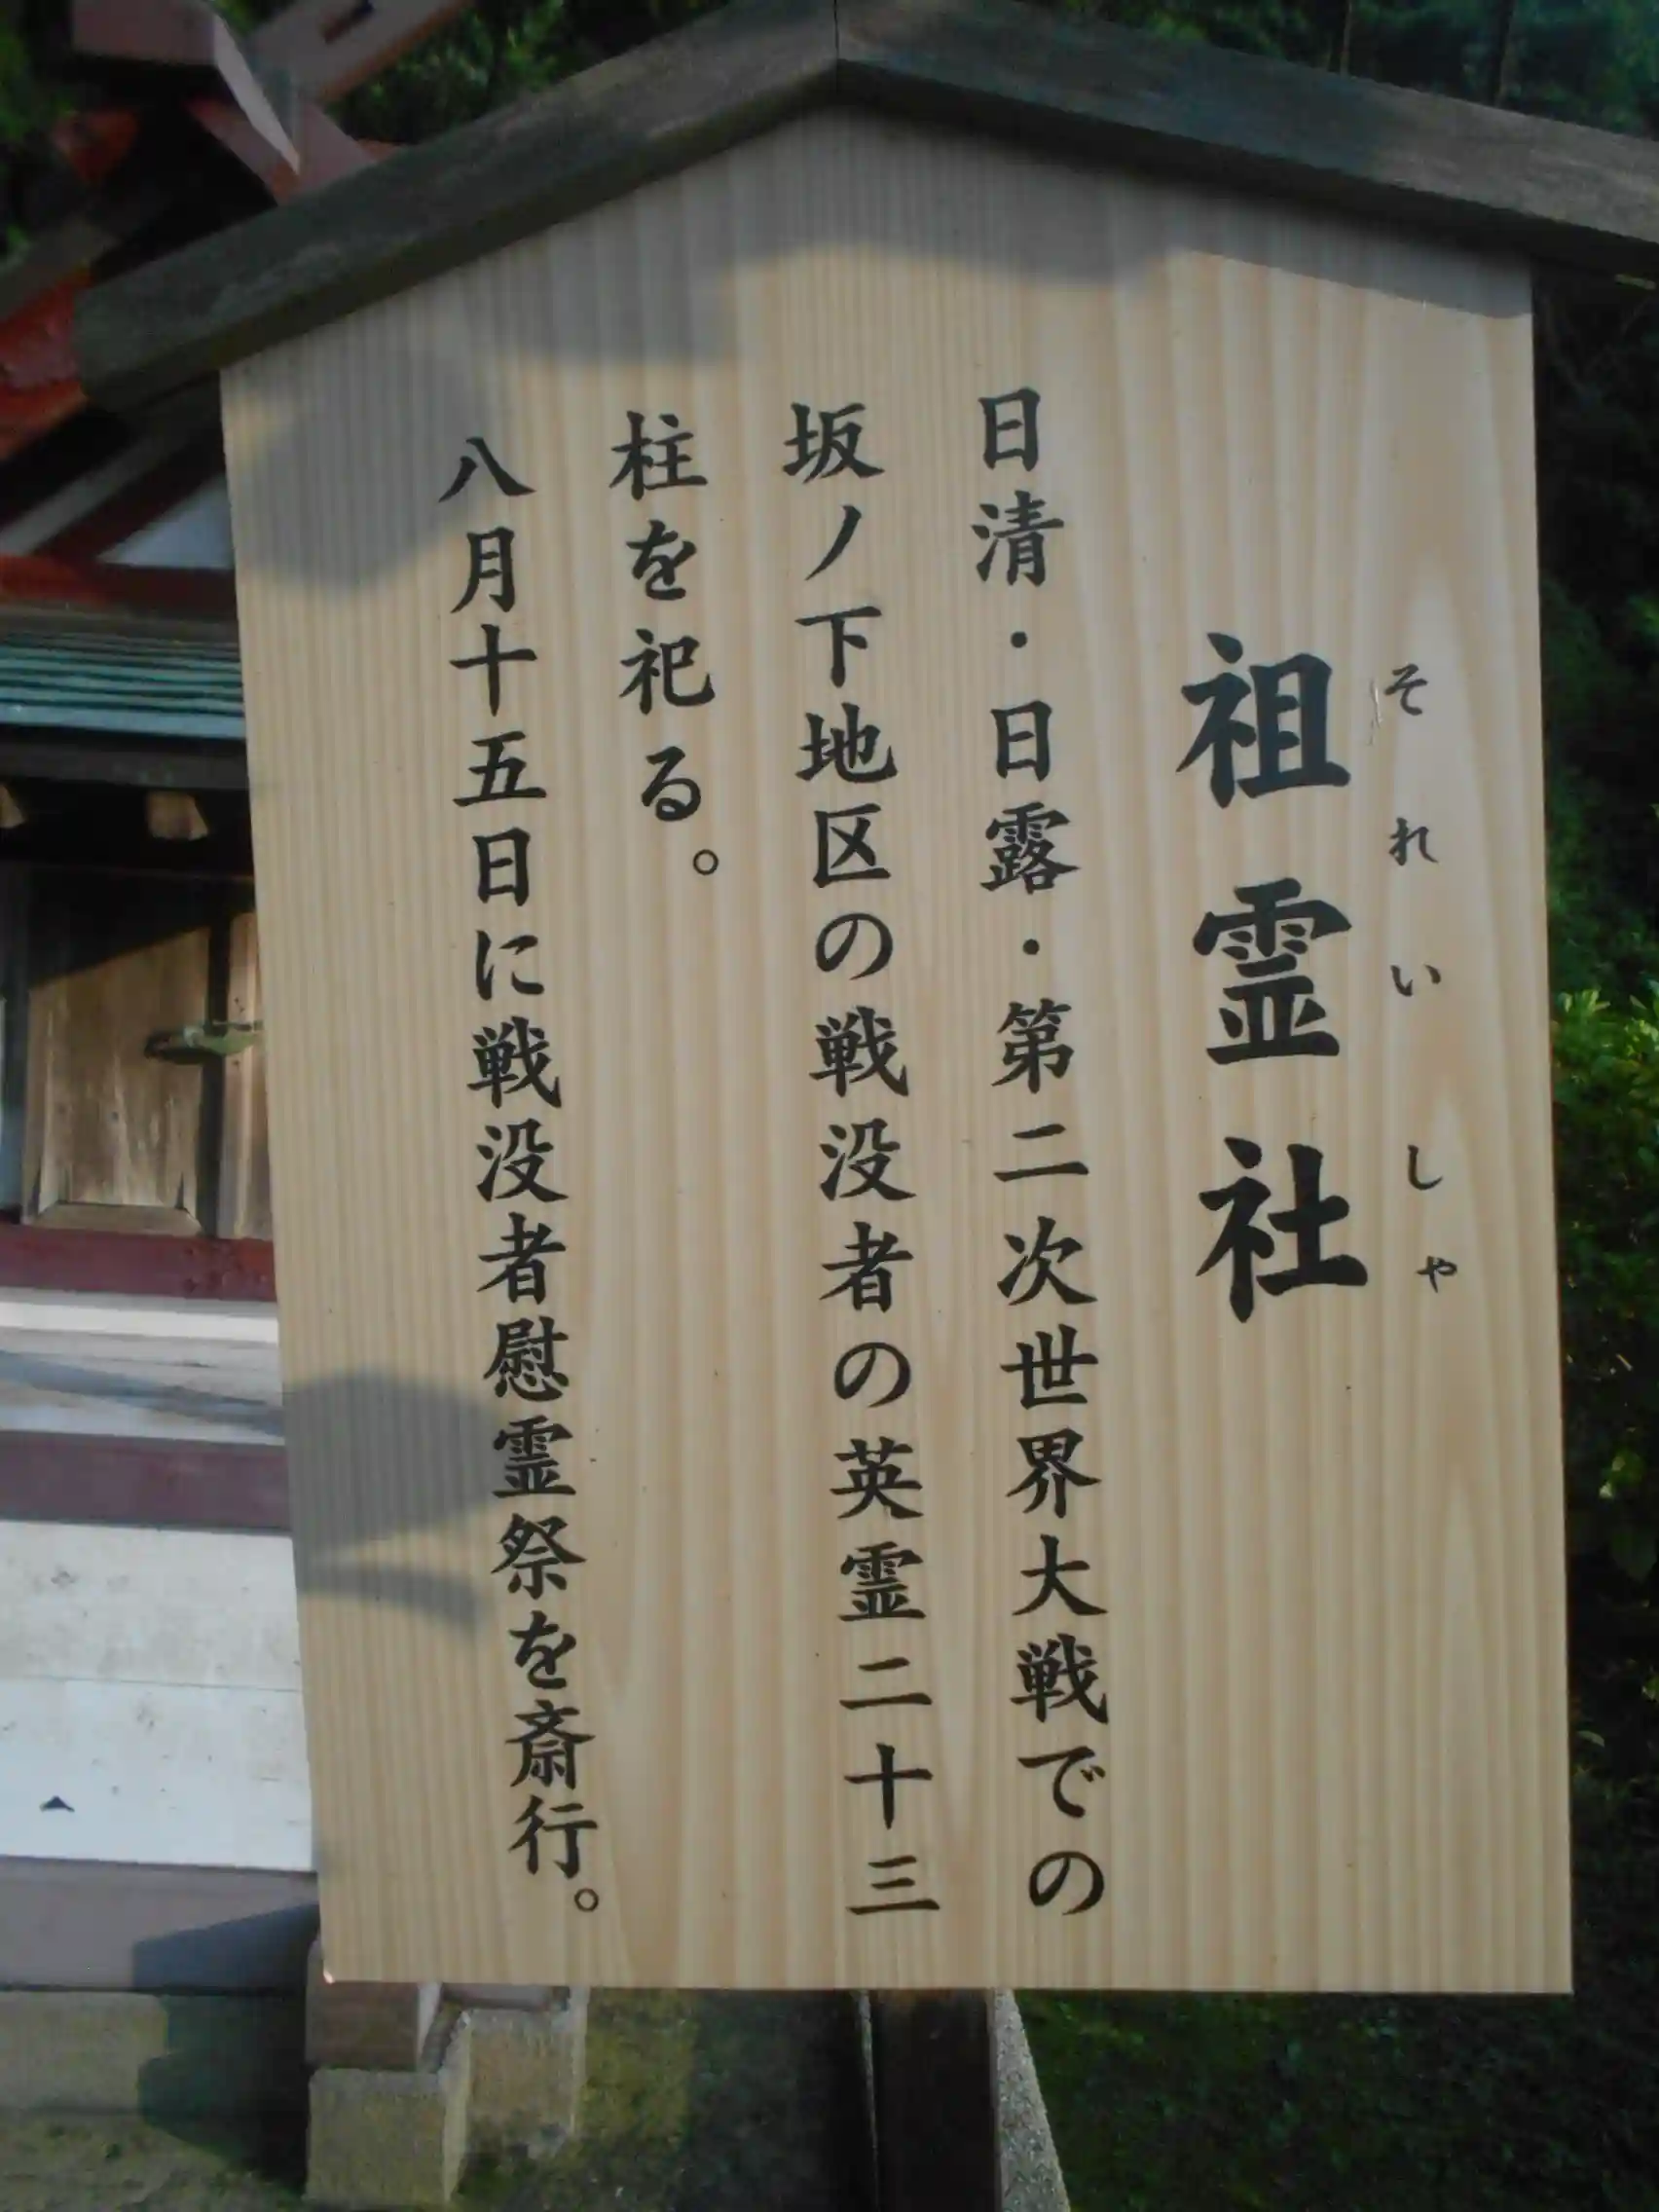 それいしゃ
祖霊社
日清・日露・第二次世界大戦での
坂ノ下地区の戦没者の英霊二十三
柱を祀る。
八月十五日に戦没者慰霊祭を斎行。